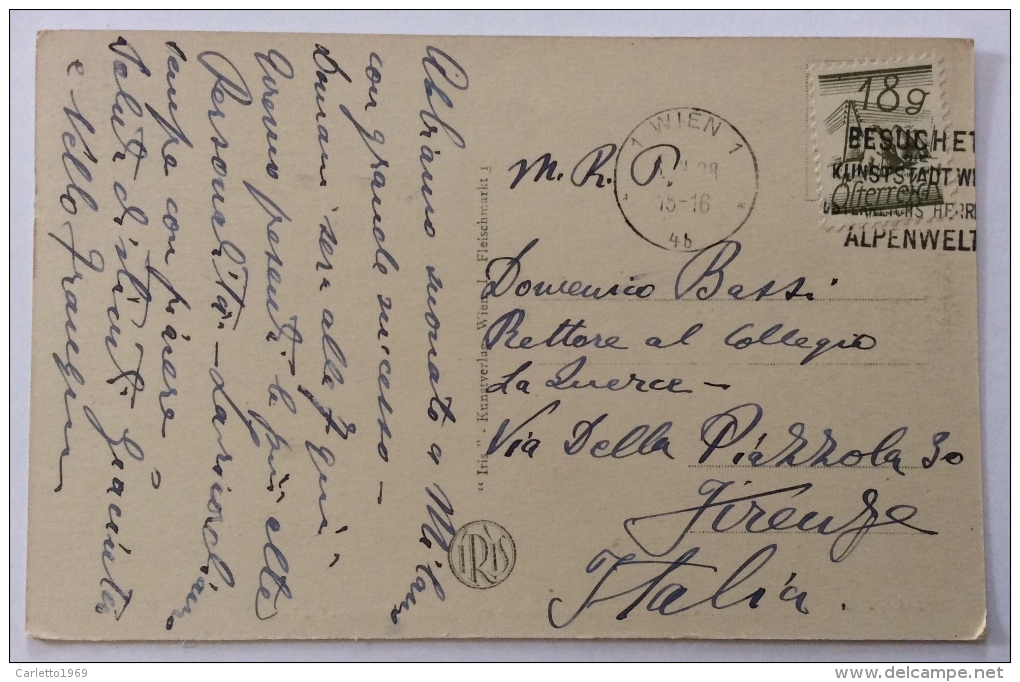 Abbiamo suonato a Milano
con grande successo –
Domani sera alle 7 qui,
avremo presenti le più alte
Personalità – Larioscliamo
sempre con piacere –
Saluti distinti Giacinta
e Nello Frangin
"Iris" - Kunstverlag Wien, 1. Fleischmarkt 1
IRIS
1 WIEN 1
28
15-16
* 4b *
18g
Österreich
BESUCHET
KUNSTSTADT WI
ÖSTERREICHS HERR
ALPENWELT
M. R. P.
Domenico Bassi
Rettore al Collegio
La Querce –
Via Della Piazzola 30
Firenze
Italia.
Carletto1969
delcampe.net